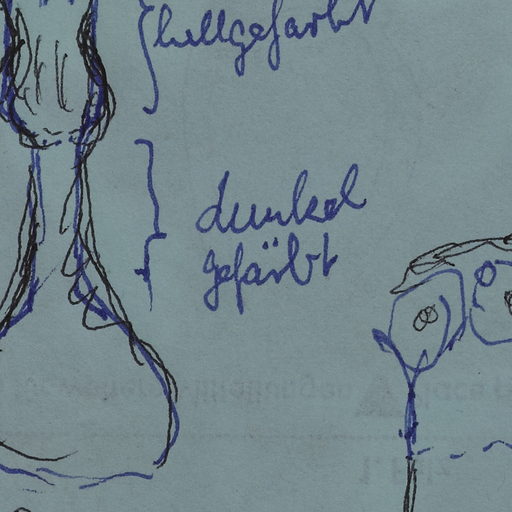 hellgefärbt
dunkel
gefärbt